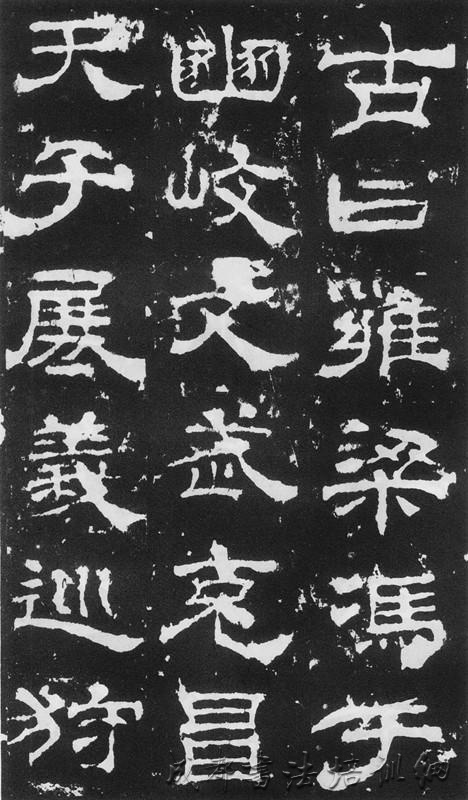 古曰雍梁馮于
豳岐文武克昌
天子展義巡狩
成都書法培训網